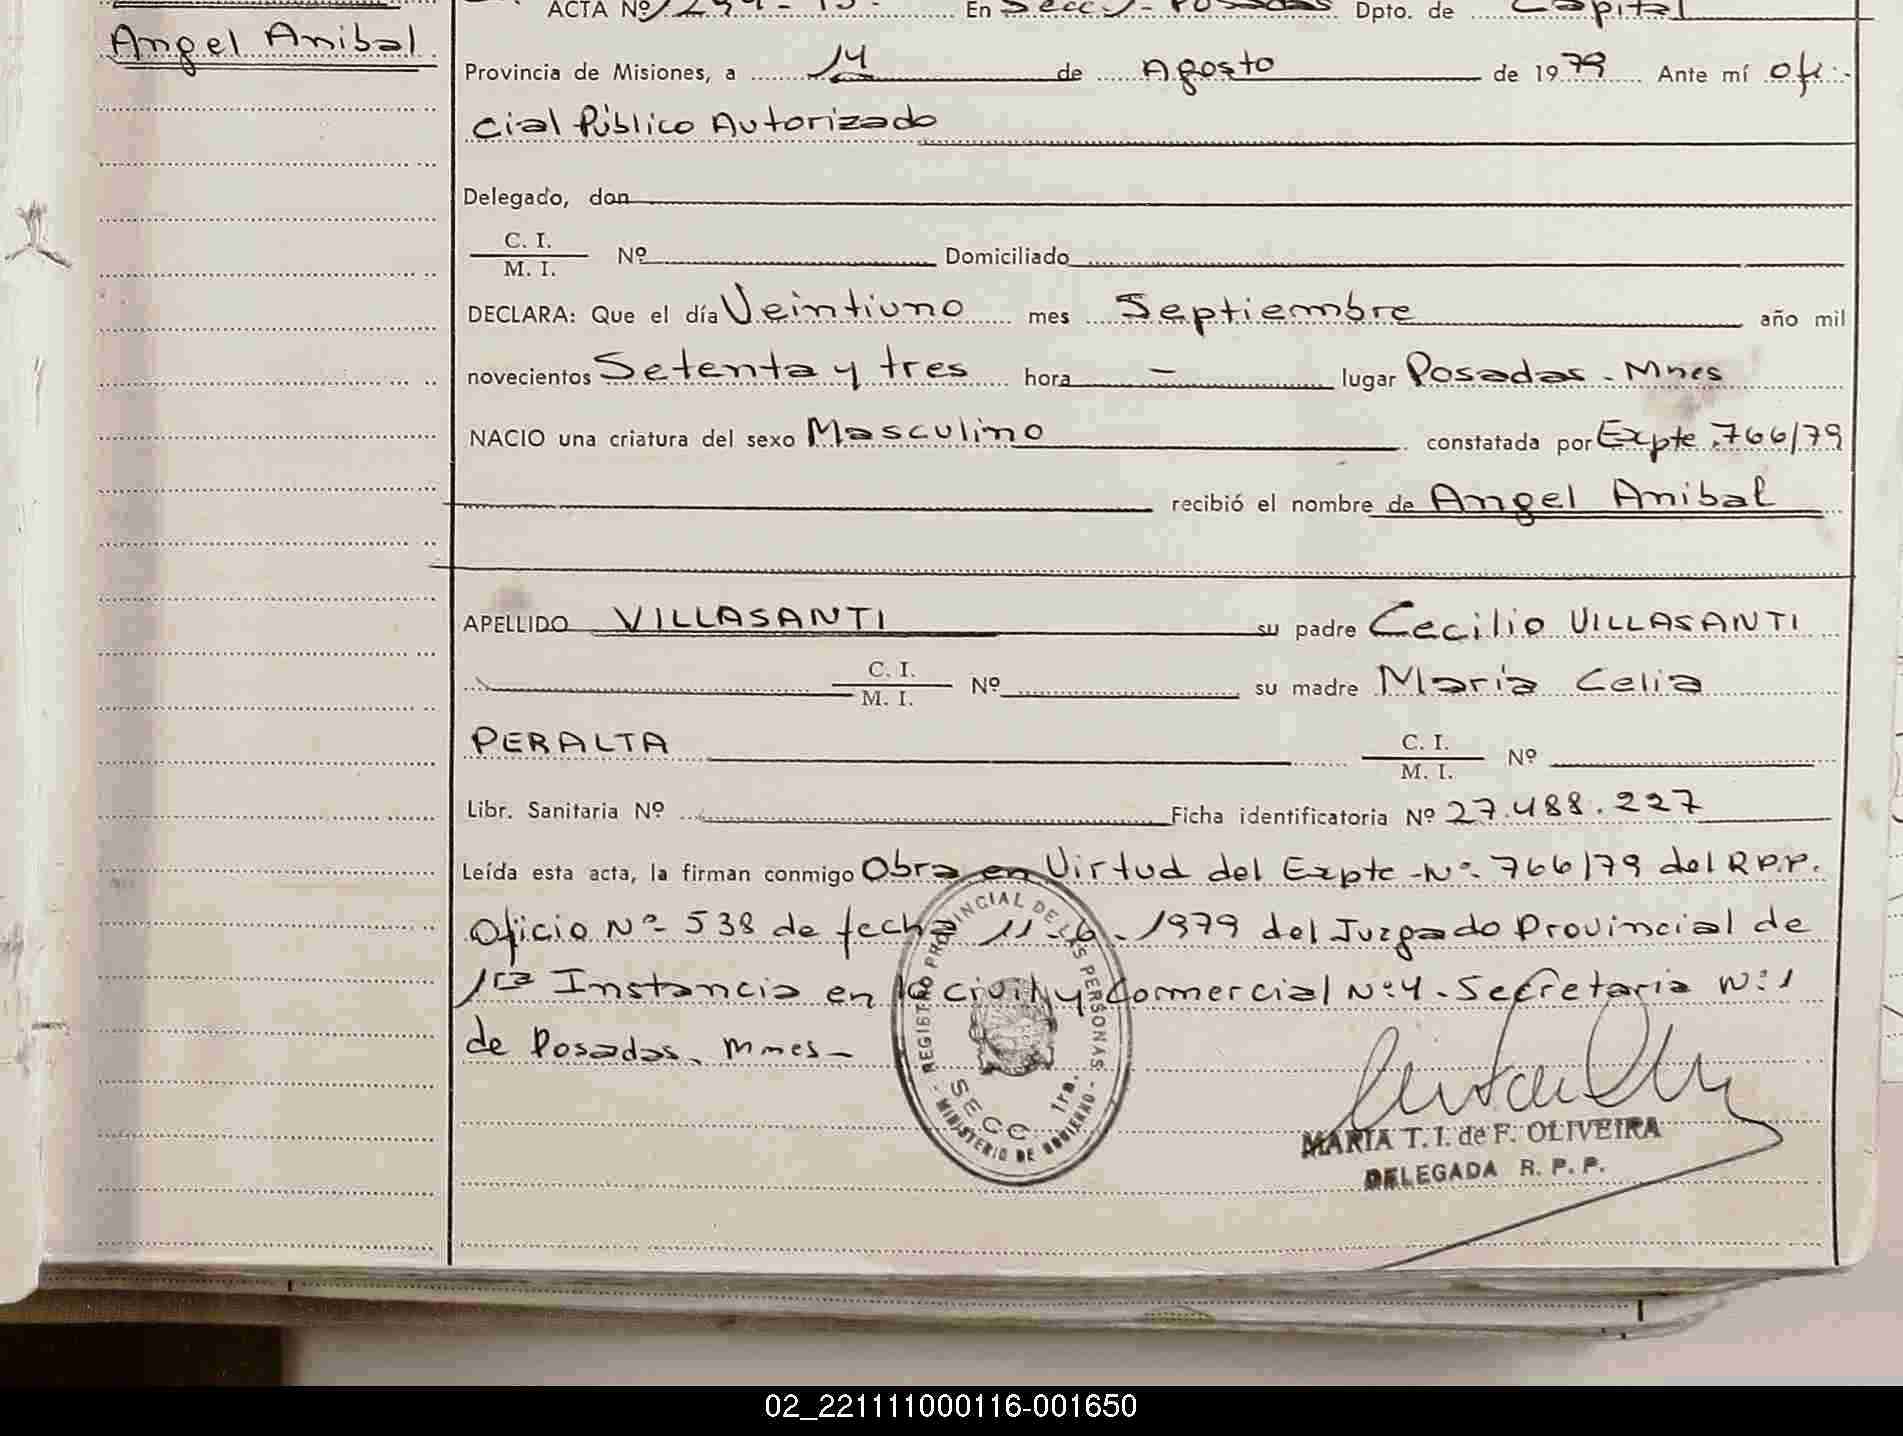 Angel Anibal
ACTA Nº En Secc. Posadas Dpto. de Capital
Provincia de Misiones, a 14 de Agosto de 1979 Ante mí ofi-
cial Público Autorizado
Delegado, don
C. I. / M. I. Nº Domiciliado
DECLARA: Que el día Veintiuno mes Septiembre año mil
novecientos Setenta y tres hora - lugar Posadas - Mnes
NACIO una criatura del sexo Masculino constatada por Expte. 766/79
recibió el nombre de Angel Anibal
APELLIDO VILLASANTI su padre Cecilio VILLASANTI
C. I. / M. I. Nº su madre Maria Celia
PERALTA C. I. / M. I. Nº
Libr. Sanitaria Nº Ficha identificatoria Nº 27.488.227
Leída esta acta, la firman conmigo Obra en Virtud del Expte Nº 766/79 del R.P.P.
Oficio Nº 538 de fecha 11-6-1979 del Juzgado Provincial de
1ra Instancia en lo civil y Commercial Nº 4 - Secretaria Nº 1
de Posadas. Mnes-
REGISTRO PROVINCIAL DE LAS PERSONAS
SECC 1ra.
- MINISTERIO DE GOBIERNO -
MARIA T. I. de F. OLIVEIRA
DELEGADA R. P. P.
02_221111000116-001650